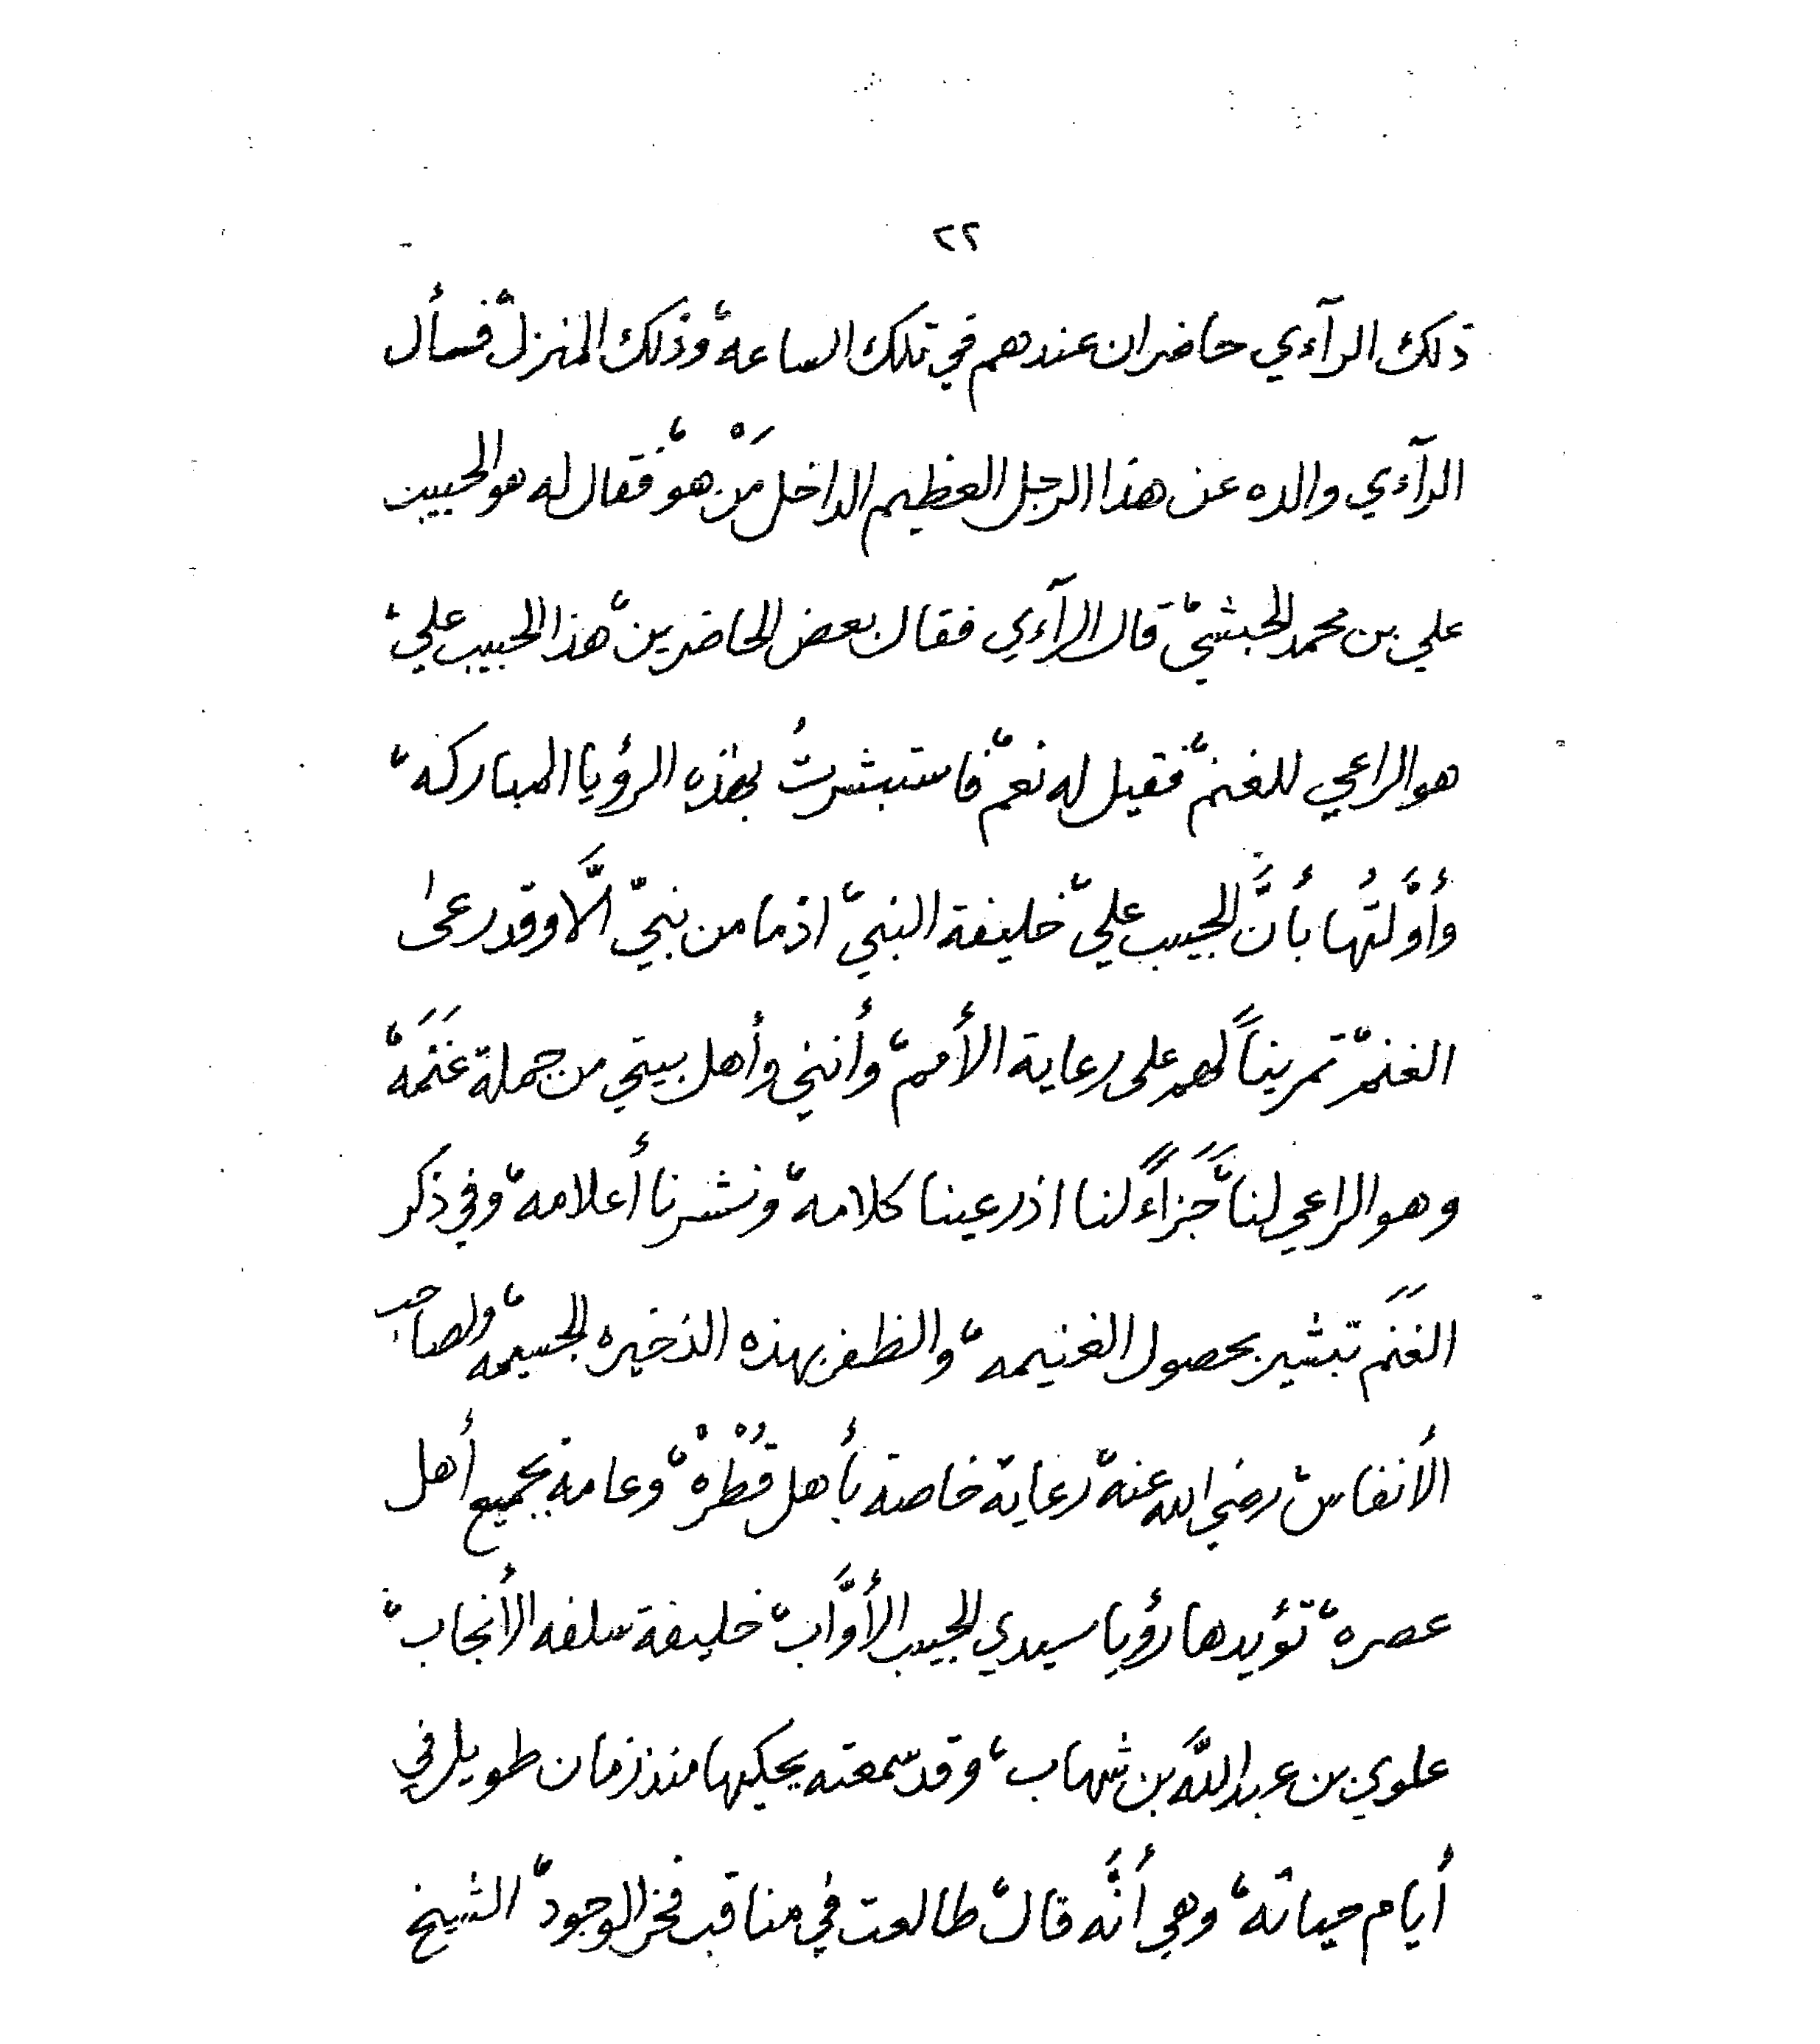 ٢٢
ذلك الرآءي حاضران عندهم في تلك الساعة، وذلك المنزل، فسأل
الرآءي والده عن هذا الرجل العظيم الداخل مَنْ هو، فقال له هو الحبيب
علي بن محمد الحبشي، قال الرآءي فقال بعض الحاضرين، هذا الحبيب علي،
هو الراعي للغنم، فقيل له نعم، فاستبشرتُ بهٰذه الرؤيا المباركه،
وأَوَّلتُها بأنَّ الحبيب علي، خليفة النبي، اذ ما من نبيّ الَّا وقد رعىٰ
الغنم، تمريناً لهم على رعاية الأمم، وأنني وأهل بيتي من جملة غَنَمه،
وهو الراعي لنا، جَزَاءً لنا اذ رعينا كلامه، ونشرنا أعلامه، وفي ذكر
الغَنَم تبشير بحصول الغنيمه، والظفر بهذه الذخيره الجسيمه، ولصاحب
الأنفاس، رضي الله عنه، رعاية خاصة بأهل قُطْرِهْ، وعامة بجميع أهل
عصره، تؤيدها رؤيا سيدي الحبيب الأوَّاب، خليفة سلفه الأنجاب،
علوي بن عبد اللَّه بن شهاب، وقد سمعته يحكيها منذ زمان طويل في
أيام حياته، وهي أنَّه قال، طالعت في مناقب فخر الوجود، الشيخ